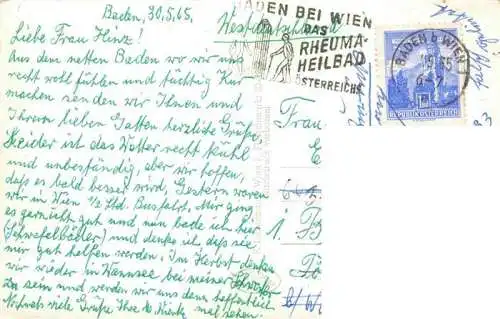 Baden, 30.5.65,
Liebe Frau Hinz!
Aus dem netten Baden wo wir uns
recht wohl fühlen und tüchtig Kur
machen senden wir Ihnen und
Ihrem lieben Gatten herzliche Grüße.
Leider ist das Wetter recht kühl
und unbeständig, aber wir hoffen,
daß es bald besser wird. Gestern waren
wir in Wien ½ Std. Busfahrt. Mir ging
es gut und nun bade ich hier
(Schwefelbäder) und denke ich daß sie
mir gut helfen werden. Im Herbst denken
wir wieder in Wannsee bei meiner
zu sein und werden wir uns dann hoffentlich
Nochmals viele Grüße Ihre mal sehen.
Westdeutschland
BADEN BEI WIEN
DAS
RHEUMA-
HEILBAD
ÖSTERREICHS
BADEN b. WIEN
REPUBLIK ÖSTERREICH
Frau
1.